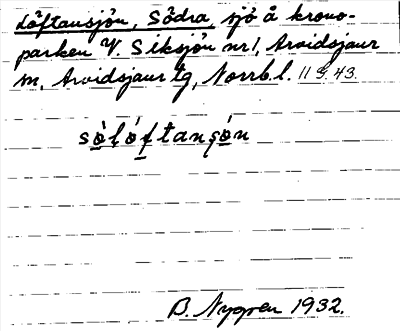 Löftansjön, Södra, sjö å krono-
parken V. Siksjön nr 1, Arvidsjaur
sn, Arvidsjaur tg, Norrb. l. 11 9. 43.
sòlóftanʂón
B. Nygren 1932.